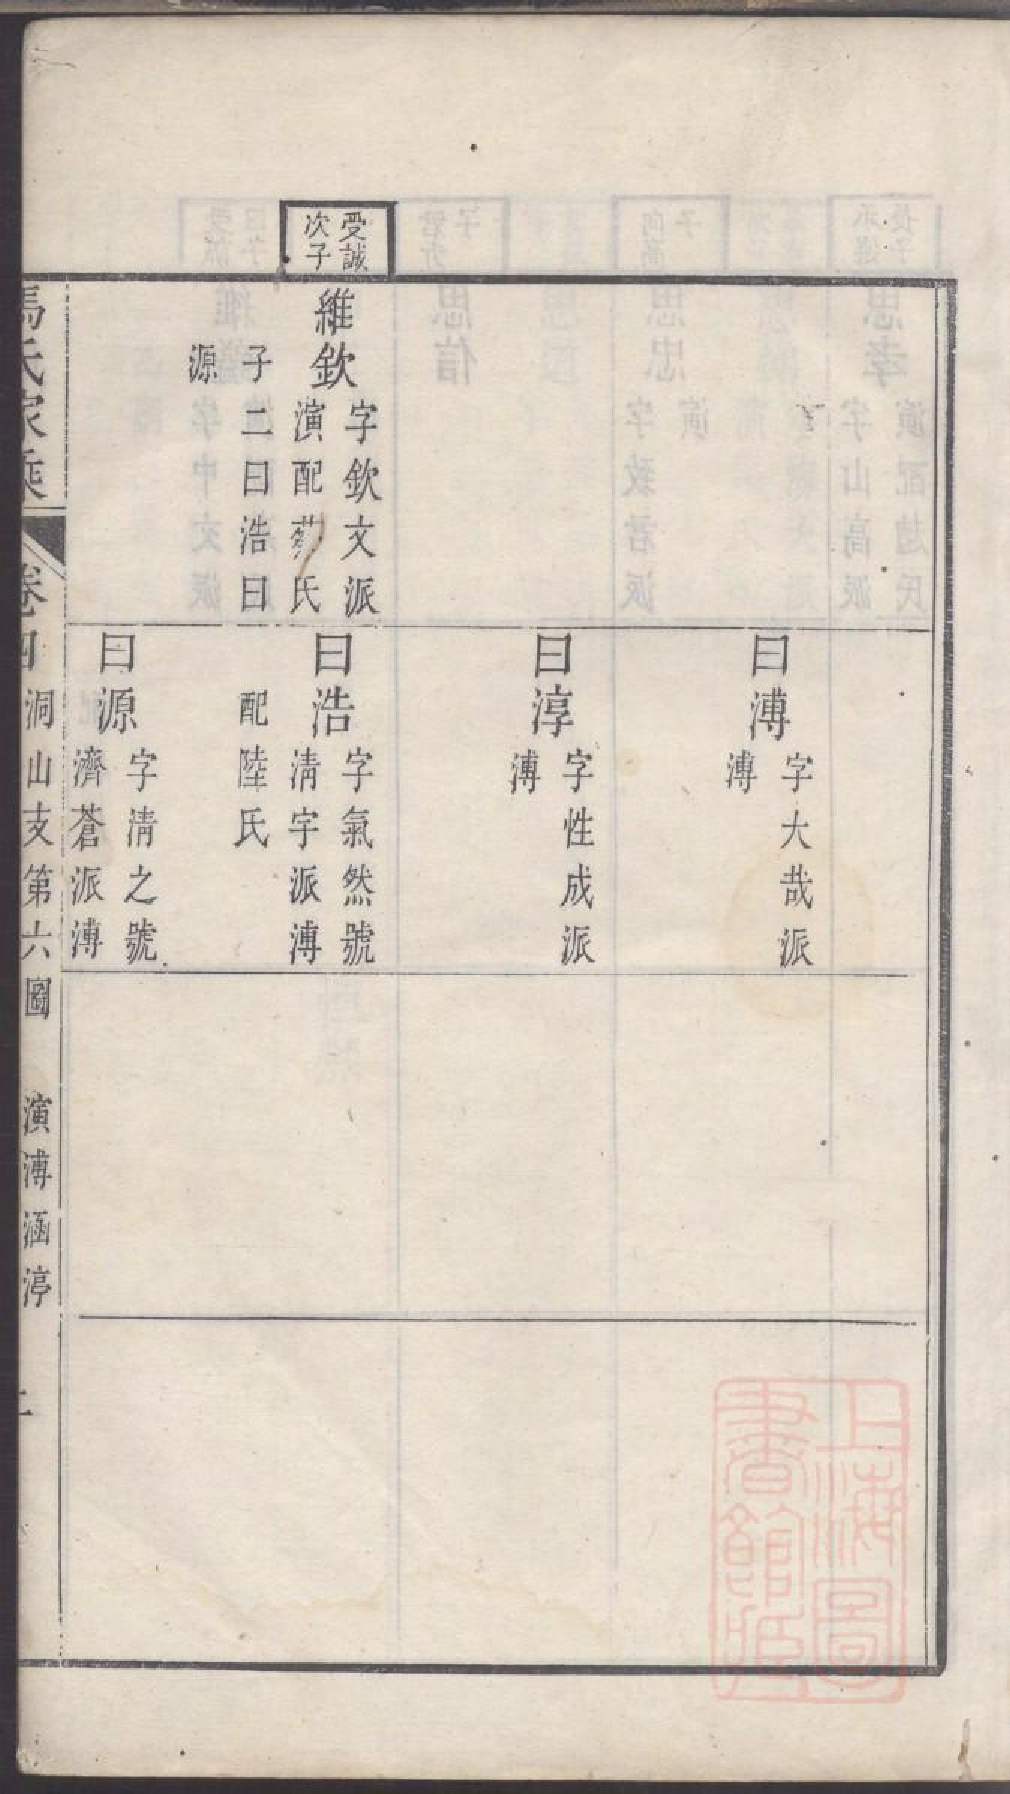 受誠
次子
維欽
字欽文派
演配蔡氏
子二曰浩曰
源
曰溥
字大哉派
溥
曰淳
字性成派
溥
曰浩
字氣然號
清宇派溥
配陸氏
曰源
字清之號
濟蒼派溥
馬氏家乘
卷四
洞山支第六圖
演溥涵渟
上海圖
書館藏